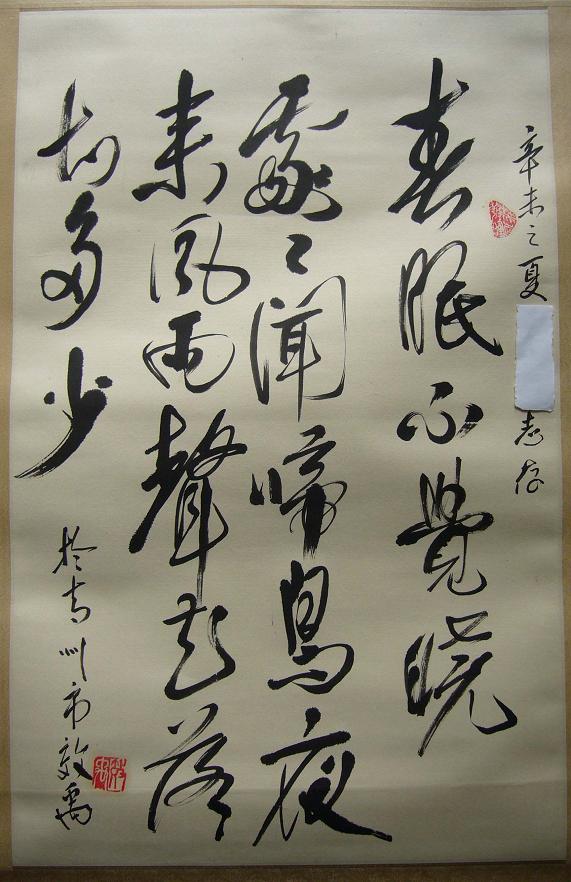 辛未之夏 志存
春眠不覺曉
處々聞啼鳥夜
来風雨聲花落
知多少
於吉州市敬禹